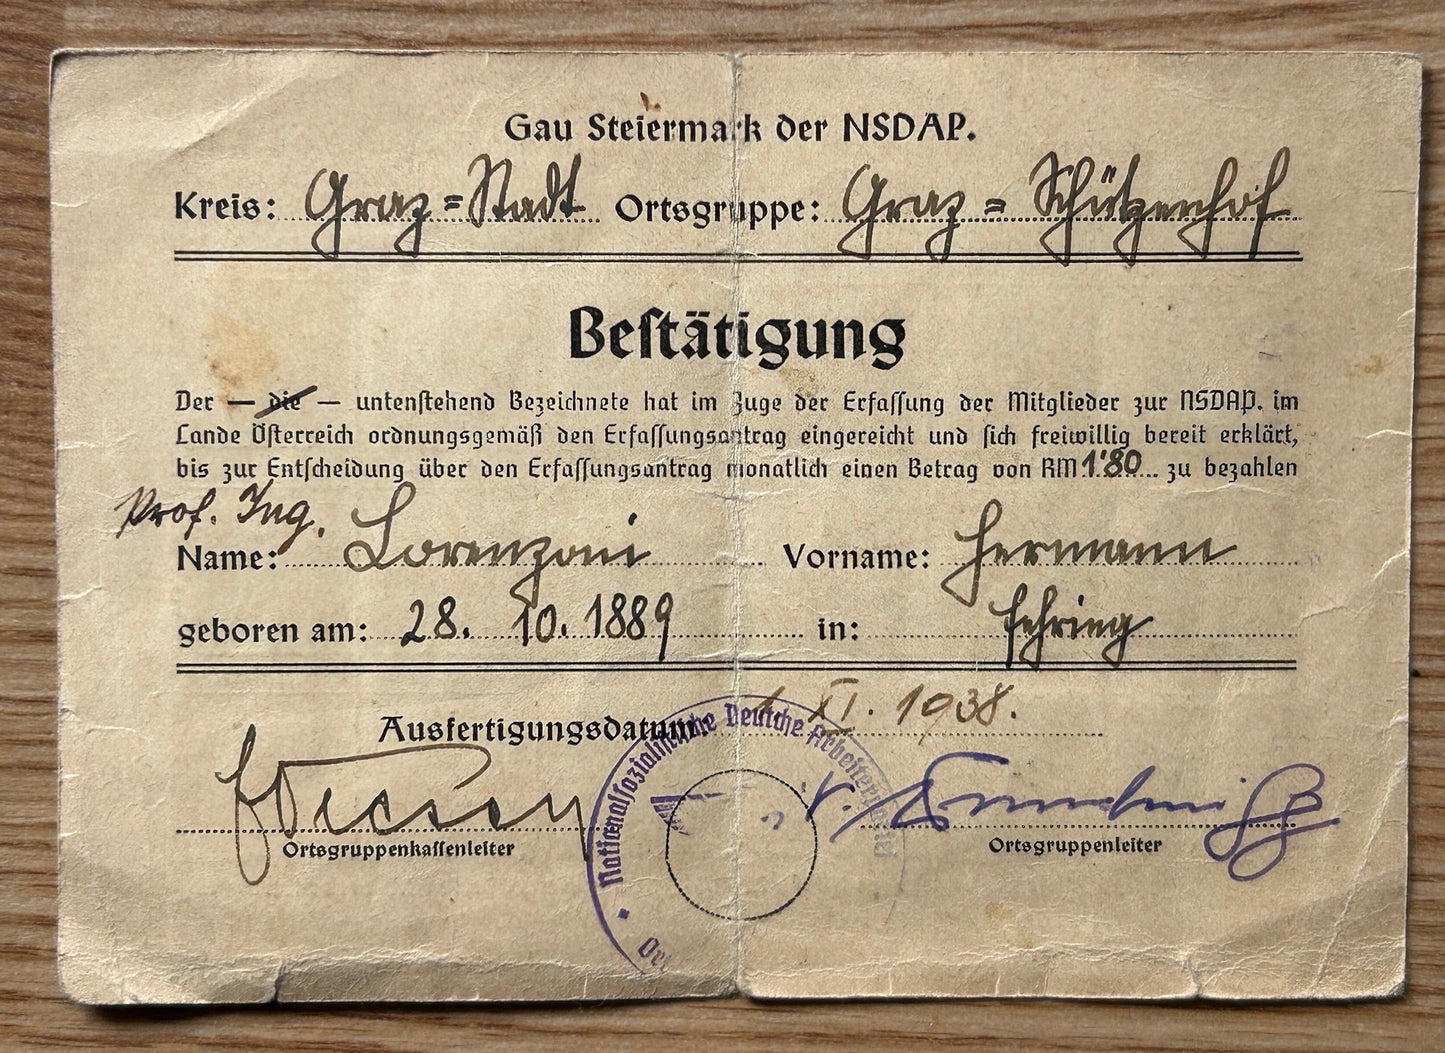 Gau Steiermark der NSDAP.
Kreis: Graz=Stadt Ortsgruppe: Graz=Schützenhof
Beſtätigung
Der — die — untenſtehend Bezeichnete hat im Zuge der Erfaſſung der Mitglieder zur NSDAP. im
Lande Öſterreich ordnungsgemäß den Erfaſſungsantrag eingereicht und ſich freiwillig bereit erklärt,
bis zur Entſcheidung über den Erfaſſungsantrag monatlich einen Betrag von RM 1'80 zu bezahlen
Prof. Ing.
Name: Lorenzoni Vorname: Hermann
geboren am: 28. 10. 1889 in: Fehring
Ausfertigungsdatum: 1. XI. 1938.
Nationalſozialiſtiſche Deutſche Arbeiterpartei
Ortsgruppenkaſſenleiter Ortsgruppenleiter